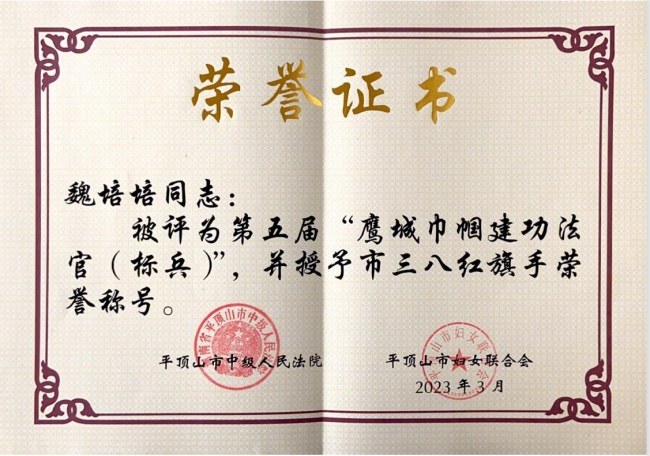 荣誉证书
魏培培同志：
被评为第五届“鹰城巾帼建功法
官（标兵）”，并授予市三八红旗手荣
誉称号。
河南省平顶山市中级人民法院
平顶山市妇女联合会
平顶山市中级人民法院 平顶山市妇女联合会
2023 年 3 月